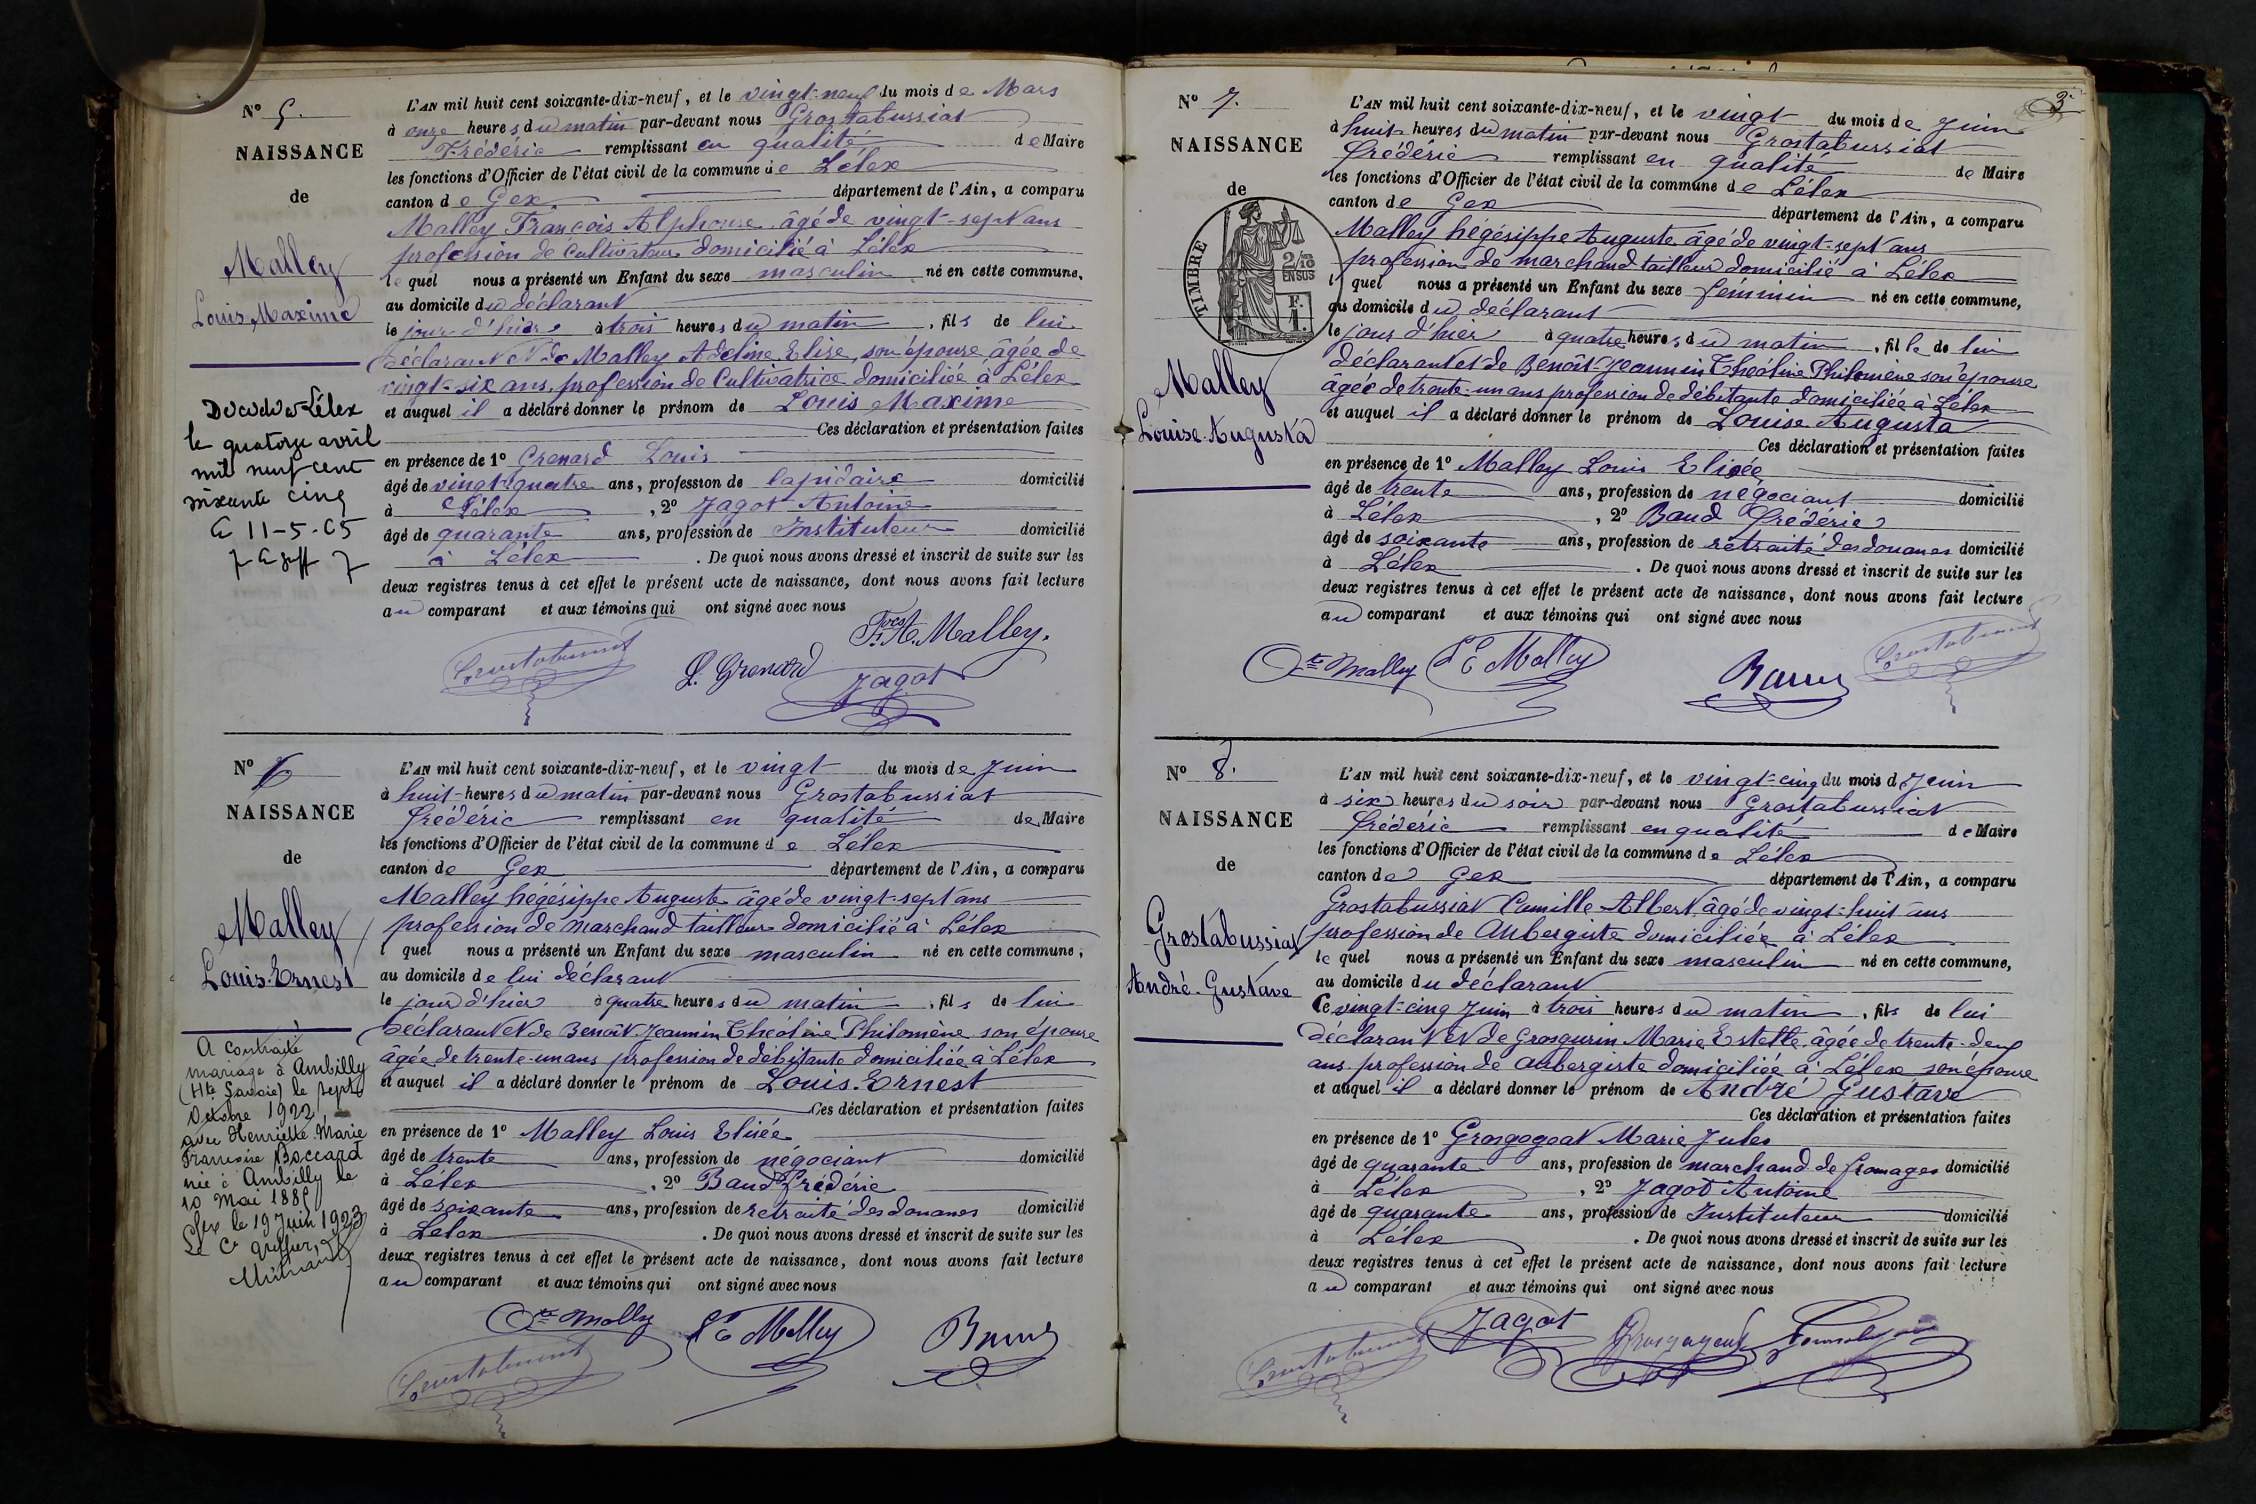 N° 5.
NAISSANCE
de
Malley
Louis Maxime
Décédé à Lélex
le quatorze avril
mil neuf cent
soixante cinq
11-5-65
L'AN mil huit cent soixante-dix-neuf, et le vingt-neuf du mois de Mars
à onze heures du matin par-devant nous Grostabussiat
Frédéric remplissant en qualité de Maire
les fonctions d'Officier de l'état civil de la commune de Lélex
canton de Gex département de l'Ain, a comparu
Malley François Alphonse âgé de vingt-sept ans
profession de Cultivateur domicilié à Lélex
lequel nous a présenté un Enfant du sexe masculin né en cette commune,
au domicile du déclarant
le jour d'hier à trois heures du matin, fils de lui
déclarant et de Malley Adeline Elise, son épouse âgée de
vingt-six ans, profession de Cultivatrice domiciliée à Lélex
et auquel il a déclaré donner le prénom de Louis Maxime
Ces déclaration et présentation faites
en présence de 1° Grenard Louis
âgé de vingt-quatre ans, profession de lapidaire domicilié
à Lélex, 2° Jagot Antoine
âgé de quarante ans, profession de Instituteur domicilié
à Lélex. De quoi nous avons dressé et inscrit de suite sur les
deux registres tenus à cet effet le présent acte de naissance, dont nous avons fait lecture
au comparant et aux témoins qui ont signé avec nous
Malley.
Grostabussiat L. Grenard Jagot
N° 6
NAISSANCE
de
Malley
Louis-Ernest
A contracté
mariage à Ambilly
(Hte Savoie) le sept
Octobre 1922
avec Henriette Marie
Françoise Boccard
née à Ambilly le
10 Mai 188
Gex le 19 Juin 1923
Le Cs greffier,
L'AN mil huit cent soixante-dix-neuf, et le vingt du mois de Juin
à huit heures du matin par-devant nous Grostabussiat
Frédéric remplissant en qualité de Maire
les fonctions d'Officier de l'état civil de la commune de Lélex
canton de Gex département de l'Ain, a comparu
Malley hégésippe Auguste âgé de vingt-sept ans
profession de Marchand tailleur domicilié à Lélex
lquel nous a présenté un Enfant du sexe masculin né en cette commune,
au domicile de lui déclarant
le jour d'hier à quatre heures du matin, fils de lui
déclarant et de Benoît-Jeannin Théoline Philomène son épouse
âgée de trente-un ans profession de débitante domiciliée à Lélex
et auquel il a déclaré donner le prénom de Louis-Ernest
Ces déclaration et présentation faites
en présence de 1° Malley Louis Elisée
âgé de trente ans, profession de négociant domicilié
à Lélex, 2° Baud Frédéric
âgé de soixante ans, profession de retraité des douanes domicilié
à Lélex. De quoi nous avons dressé et inscrit de suite sur les
deux registres tenus à cet effet le présent acte de naissance, dont nous avons fait lecture
au comparant et aux témoins qui ont signé avec nous
Malley L E Malley Baud
Grostabussiat
3
N° 7.
NAISSANCE
de
TIMBRE
2/10 EN SUS
F. 1.
Malley
Louise-Augusta
L'AN mil huit cent soixante-dix-neuf, et le vingt du mois de Juin
à huit heures du matin par-devant nous Grostabussiat
Frédéric remplissant en qualité de Maire
les fonctions d'Officier de l'état civil de la commune de Lélex
canton de Gex département de l'Ain, a comparu
Malley hégésippe Auguste âgé de vingt-sept ans
profession de marchand tailleur domicilié à Lélex
lquel nous a présenté un Enfant du sexe féminin né en cette commune,
au domicile du déclarant
le jour d'hier à quatre heures du matin, fille de lui
déclarant et de Benoît-Jeannin Théoline Philomène son épouse
âgée de trente-un ans profession de débitante domiciliée à Lélex
et auquel il a déclaré donner le prénom de Louise Augusta
Ces déclaration et présentation faites
en présence de 1° Malley Louis Elisée
âgé de trente ans, profession de négociant domicilié
à Lélex, 2° Baud Frédéric
âgé de soixante ans, profession de retraité des douanes domicilié
à Lélex. De quoi nous avons dressé et inscrit de suite sur les
deux registres tenus à cet effet le présent acte de naissance, dont nous avons fait lecture
au comparant et aux témoins qui ont signé avec nous
Malley L E Malley Baud Grostabussiat
N° 8.
NAISSANCE
de
Grostabussiat
André-Gustave
L'AN mil huit cent soixante-dix-neuf, et le vingt-cinq du mois d Juin
à six heures du soir par-devant nous Grostabussiat
Frédéric remplissant en qualité de Maire
les fonctions d'Officier de l'état civil de la commune de Lélex
canton de Gex département de l'Ain, a comparu
Grostabussiat Camille Albert âgé de vingt-huit ans
profession de Aubergiste domiciliée à Lélex
lequel nous a présenté un Enfant du sexe masculin né en cette commune,
au domicile du déclarant
le vingt-cinq Juin à trois heures du matin, fils de lui
déclarant et de Grosgurin Marie Estelle âgée de trente-deux
ans profession de Aubergiste domiciliée à Lélex son épouse
et auquel il a déclaré donner le prénom de André Gustave
Ces déclaration et présentation faites
en présence de 1° Grosgogeat Marie Jules
âgé de quarante ans, profession de marchand de fromages domicilié
à Lélex, 2° Jagot Antoine
âgé de quarante ans, profession de Instituteur domicilié
à Lélex. De quoi nous avons dressé et inscrit de suite sur les
deux registres tenus à cet effet le présent acte de naissance, dont nous avons fait lecture
au comparant et aux témoins qui ont signé avec nous
Grostabussiat Jagot Grosgogeat